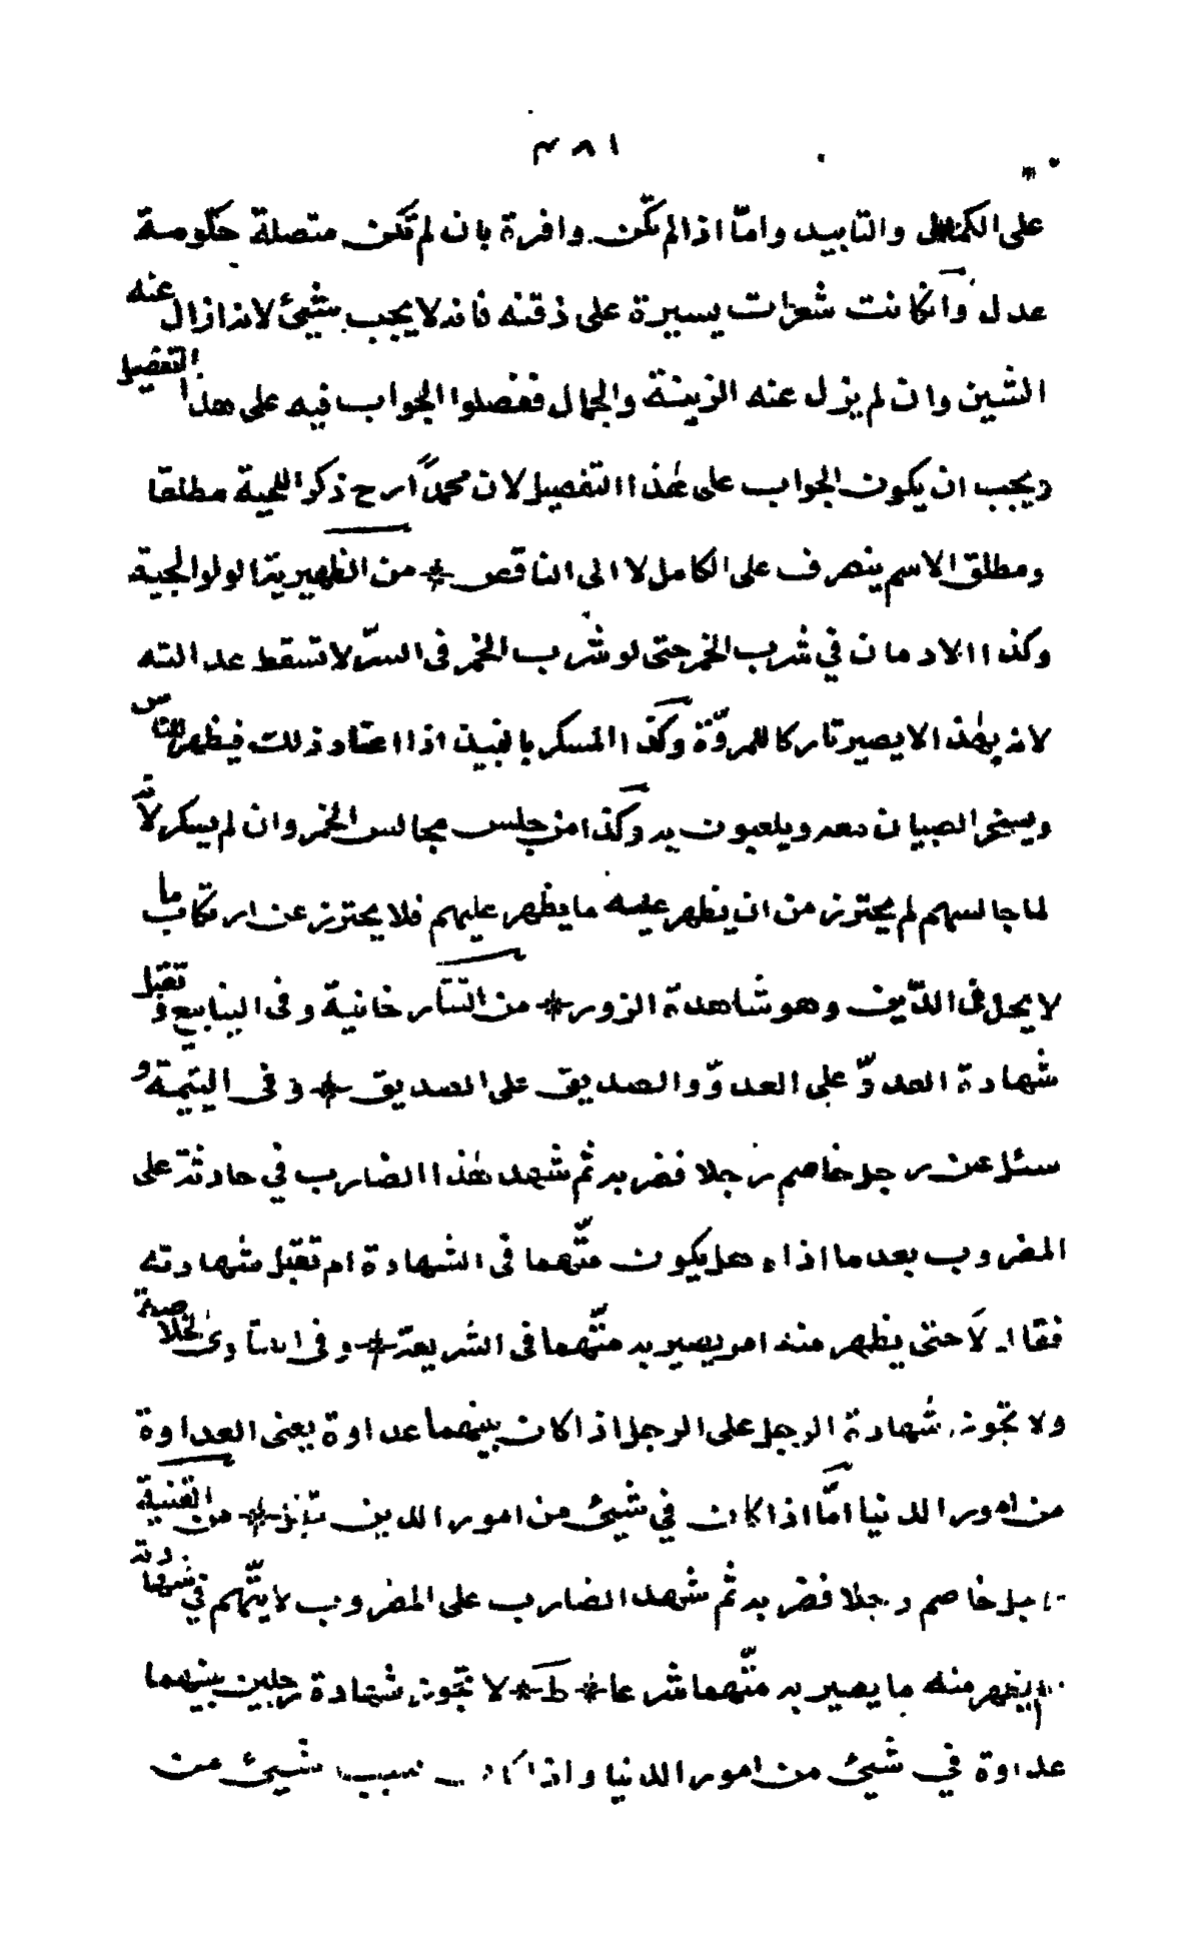 ١٨٣
على الكمال والتابيد وامّا اذا لم تكن وافرة بان لم تكن متصلة حكومة
عدل وانكانت شعرات يسيرة على ذقنه فانه لا يجب شيئ لانه ازال عنه
الشين وان لم يزل عنه الزينة والجمال ففصلوا الجواب فيه على هذا التفصيل
ويجب ان يكون الجواب على هٰذا التفصيل لان محمدًا رح ذكر اللحية مطلقا
ومطلق الاسم ينصرف على الكامل لا الى الناقص * من الظهيرية الولوالجية
وكذا الادمان في شرب الخمر حتى لو شرب الخمر فى السرّ لا تسقط عدالته
لانه بهٰذا لا يصير تاركا للمروّة وكذا المسكر بالنبيذ اذا اعتاد ذلك فيظهر للناس
ويسخر الصبيان معه ويلعبون به وكذا من جلس مجالس الخمر وان لم يسكر لانه
لما جالسهم لم يحترز من ان يظهر عليه ما يظهر عليهم فلا يحترز عن ارتكاب ما
لا يحل فى الدّين وهو شاهدة الزور * من التتار خانية وفى الينابيع وتقبل
شهادة العدوّ على العدوّ والصديق على الصديق * و فى اليتيمة و
سئل عن رجل خاصم رجلا فضربه ثم شهد هٰذا الضارب في حادثة على
المضروب بعد ما اذاه هل يكون متّهما فى الشهادة ام تقبل شهادته
فقال لا حتى يظهر منه امر يصير به متّهما فى الشريعة * وفى الفتاوى الخلاصة
ولا تجوز شهادة الرجل على الرجل اذا كان بينهما عداوة يعنى العداوة
من امور الدنيا امّا اذا كان في شيئ من امور الدين تجوز * من القنية
رجل خاصم رجلا فضربه ثم شهد الضارب على المضروب لا يتّهم في شهادته
لم يظهر منه ما يصير به متّهما شرعا * ط * لا تجوز شهادة رجلين بينهما
عداوة في شيئ من امور الدنيا واذا كان بسبب شيئ من